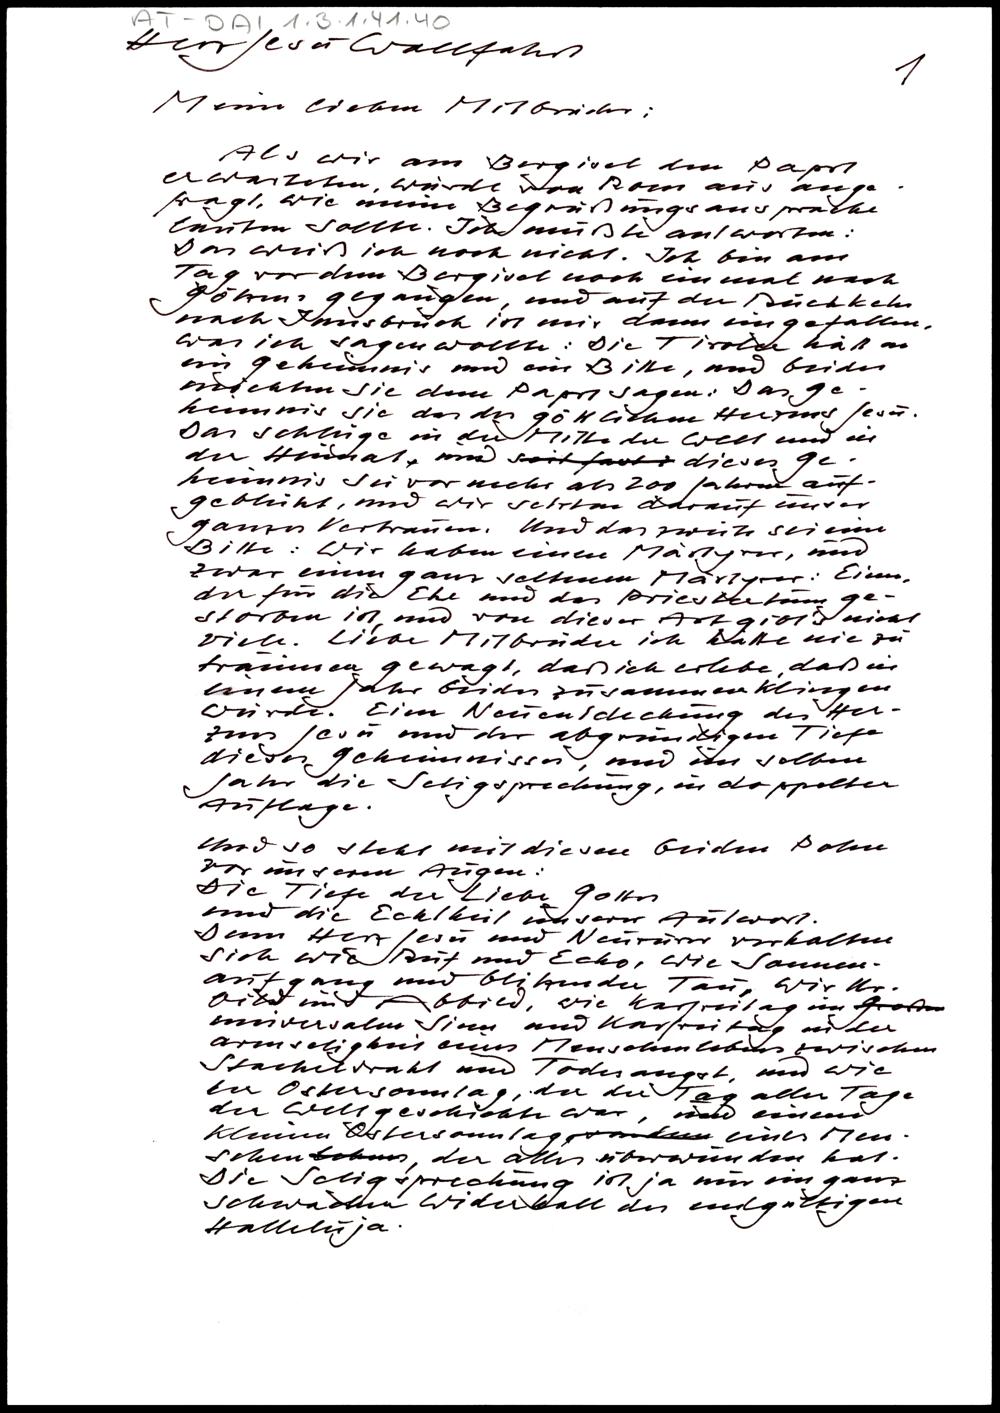 AT-DAI 1.3.1.41.40
Herz Jesu Wallfahrt
1
Meine lieben Mitbrüder:
Als wir am Bergisel den Papst
erwarteten, wurde von Rom aus ange-
fragt, wie meine Begrüßungsansprache
lauten sollte. Ich mußte antworten:
Das weiß ich noch nicht. Ich bin am
Tag vor dem Bergisel noch einmal nach
Götzens gegangen, und auf der Rückkehr
nach Innsbruck ist mir dann eingefallen,
was ich sagen wollte: Die Tiroler hätten
ein Geheimnis und ein Bitte, und beides
möchten sie dem Papst sagen: Das Ge-
heimnis sie das des göttlichen Herzens Jesu.
Das schlüge in der Mitte der Welt und in
der Heimat, und seit fast dieses Ge-
heimnis sei vor mehr als 200 Jahren auf-
geblüht, und wir setzten darauf unser
ganzes Vertrauen. Und das zweite sei eine
Bitte: Wir haben einen Märtyrer, und
zwar einen ganz seltenen Märtyrer: Einen,
der für die Ehe und das Priestertum ge-
storben ist, und von dieser Art gibt's nicht
viele. Liebe Mitbrüder ich hatte nie zu
träumen gewagt, daß ich erlebe, daß in
einem Jahr beides zusammenklingen
würde. Eine Neuentdeckung des Her-
zens Jesu und der abgründigen Tiefe
dieses Geheimnisses, und im selben
Jahr die Seligsprechung, in doppelter
Auflage.
Und so steht mit diesen beiden Polen
vor unseren Augen:
Die Tiefe der Liebe Gottes
und die Echtheit unserer Antwort.
Denn Herz Jesu und Neururer verhalten
sich wie Ruf und Echo, wie Sonnen-
aufgang und blitzender Tau, wie Ur-
bild und Abbild, wie Karfreitag im großen
universalen Sinn und Karfreitag in der
Armseligkeit eines Menschenlebens zwischen
Stacheldraht und Todesangst, und wie
der Ostersonntag, der der Tag aller Tage
der Weltgeschichte war, und einem
kleinen Ostersonntag, eines Men-
schen lebens, der alles überwunden hat.
Die Seligsprechung ist ja nur ein ganz
schwacher Widerhall des endgültigen
Halleluja.